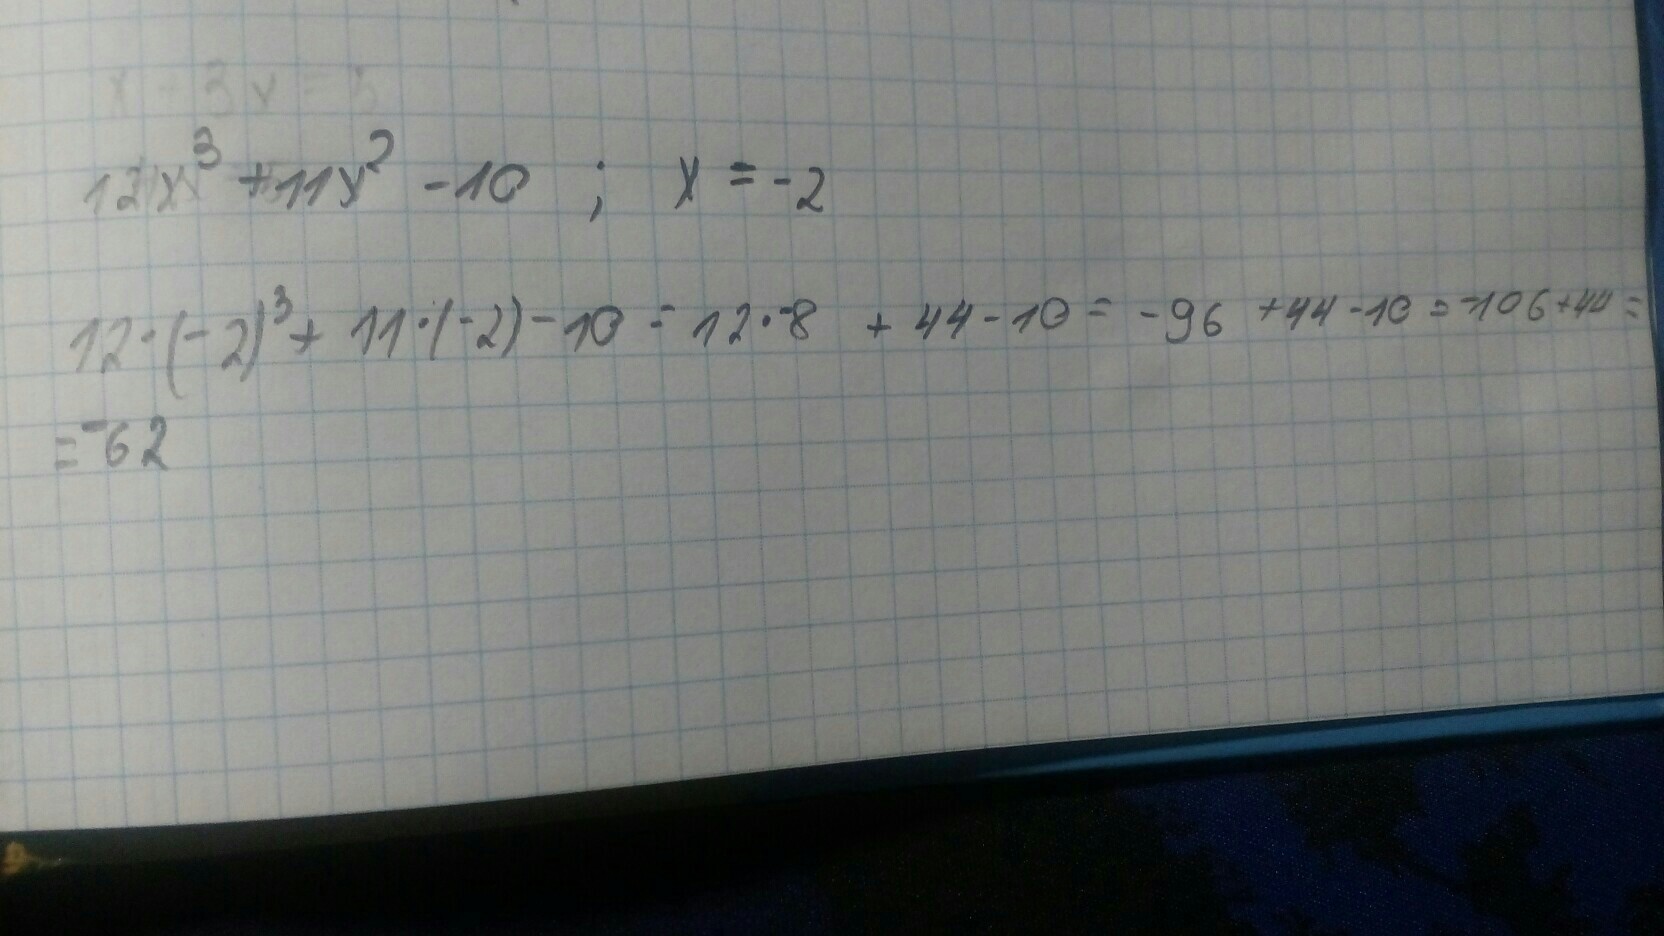 12x³ + 11x² - 10 ; x = -2
12·(-2)³ + 11·(-2) - 10 = 12·-8 + 44 - 10 = -96 + 44 - 10 = -106 + 44 =
= -62